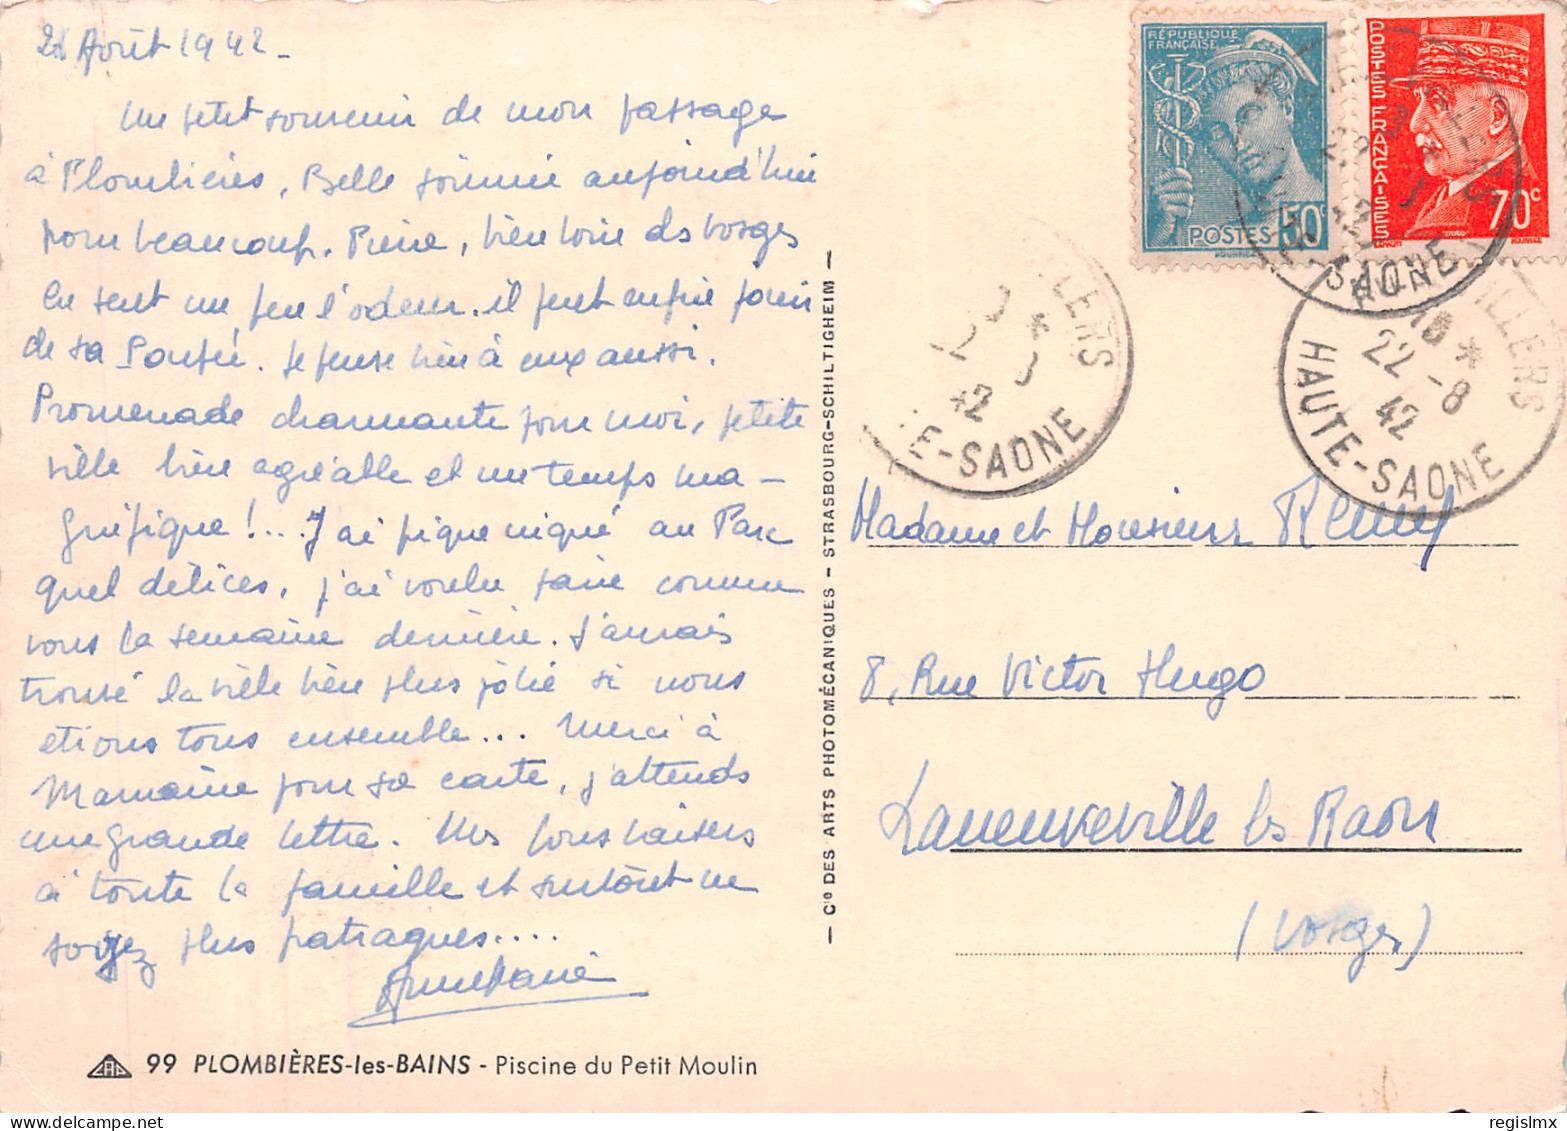 21 Août 1942 -
Un petit souvenir de mon passage
à Plombières. Belle journée aujourd'hui
pour beaucoup. Pierre, bien loin des Vosges
en sent un peu l'odeur. il peut enfin jouir
de sa Poupée. Je pense bien à eux aussi.
Promenade charmante pour moi, petite
ville bien agréable et un temps ma-
gnifique !... J'ai pique niqué au Parc
quel délices, j'ai voulu faire comme
vous la semaine dernière. J'aurais
trouvé la ville bien plus jolie si nous
etions tous ensemble... Merci à
Mamaine pour sa carte, j'attends
une grande lettre. Mes bons baisers
à toute la famille et surtout ne
soyez plus patraques....
AnneMarie
99 PLOMBIÈRES-les-BAINS - Piscine du Petit Moulin
— Cie DES ARTS PHOTOMÉCANIQUES - STRASBOURG-SCHILTIGHEIM —
RÉPUBLIQUE
FRANÇAISE
50c
POSTES
POSTES FRANÇAISES
70c
SAONE
LLERS
*
42
TE-SAONE
ILLERS
*
22 -8
42
HAUTE-SAONE
Madame et Monsieur Remy
8, Rue Victor Hugo
Laneuveville les Raon
(Vosges)
regislmx